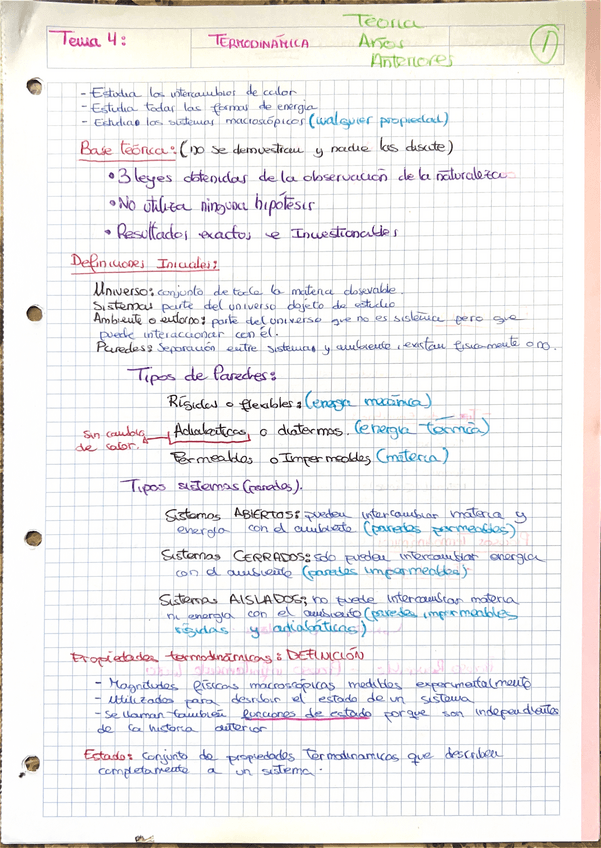 Tema 4:
TERMODINÁMICA
Teoría
Años
Anteriores
1
- Estudia los intercambios de calor
- Estudia todas las formas de energia
- Estudia los sistemas macroscópicos (cualquier propiedad)
Base teórica: (no se demuestran y nadie las discute)
• 3 leyes obtenidas de la observación de la naturaleza
• No utiliza ninguna hipótesis
• Resultados exactos e Incuestionables
Definiciones Iniciales:
Universo: conjunto de toda la materia observable.
Sistemas parte del universo objeto de estudio
Ambiente o entorno: parte del universo que no es sistema pero que
puede interaccionar con él.
Paredes: Separación entre sistemas y ambiente, existan fisicamente o no.
Tipos de Paredes:
Rígidas o flexibles: (energia mecánica)
Adiabáticas o diatermas. (energia térmica)
Sin cambio
de calor.
Permeables o Impermeables (materia)
Tipos sistemas (paredes).
Sistemas ABIERTOS: pueden intercambiar materia y
energia con el ambiente (paredes permeables)
Sistemas CERRADOS: solo pueden intercambiar energia
con el ambiente (paredes impermeables)
Sistemas AISLADOS: no puede intercambiar materia
ni energia con el ambiente (paredes impermeables,
rígidas y adiabáticas)
Propiedades termodinámicas: DEFINICIÓN
- Magnitudes físicas macroscópicas medibles experimentalmente
- Utilizadas para describir el estado de un sistema
- Se llaman también funciones de estado porque son independientes
de la historia anterior
Estado: Conjunto de propiedades Termodinamicas que describen
completamente a un sistema.